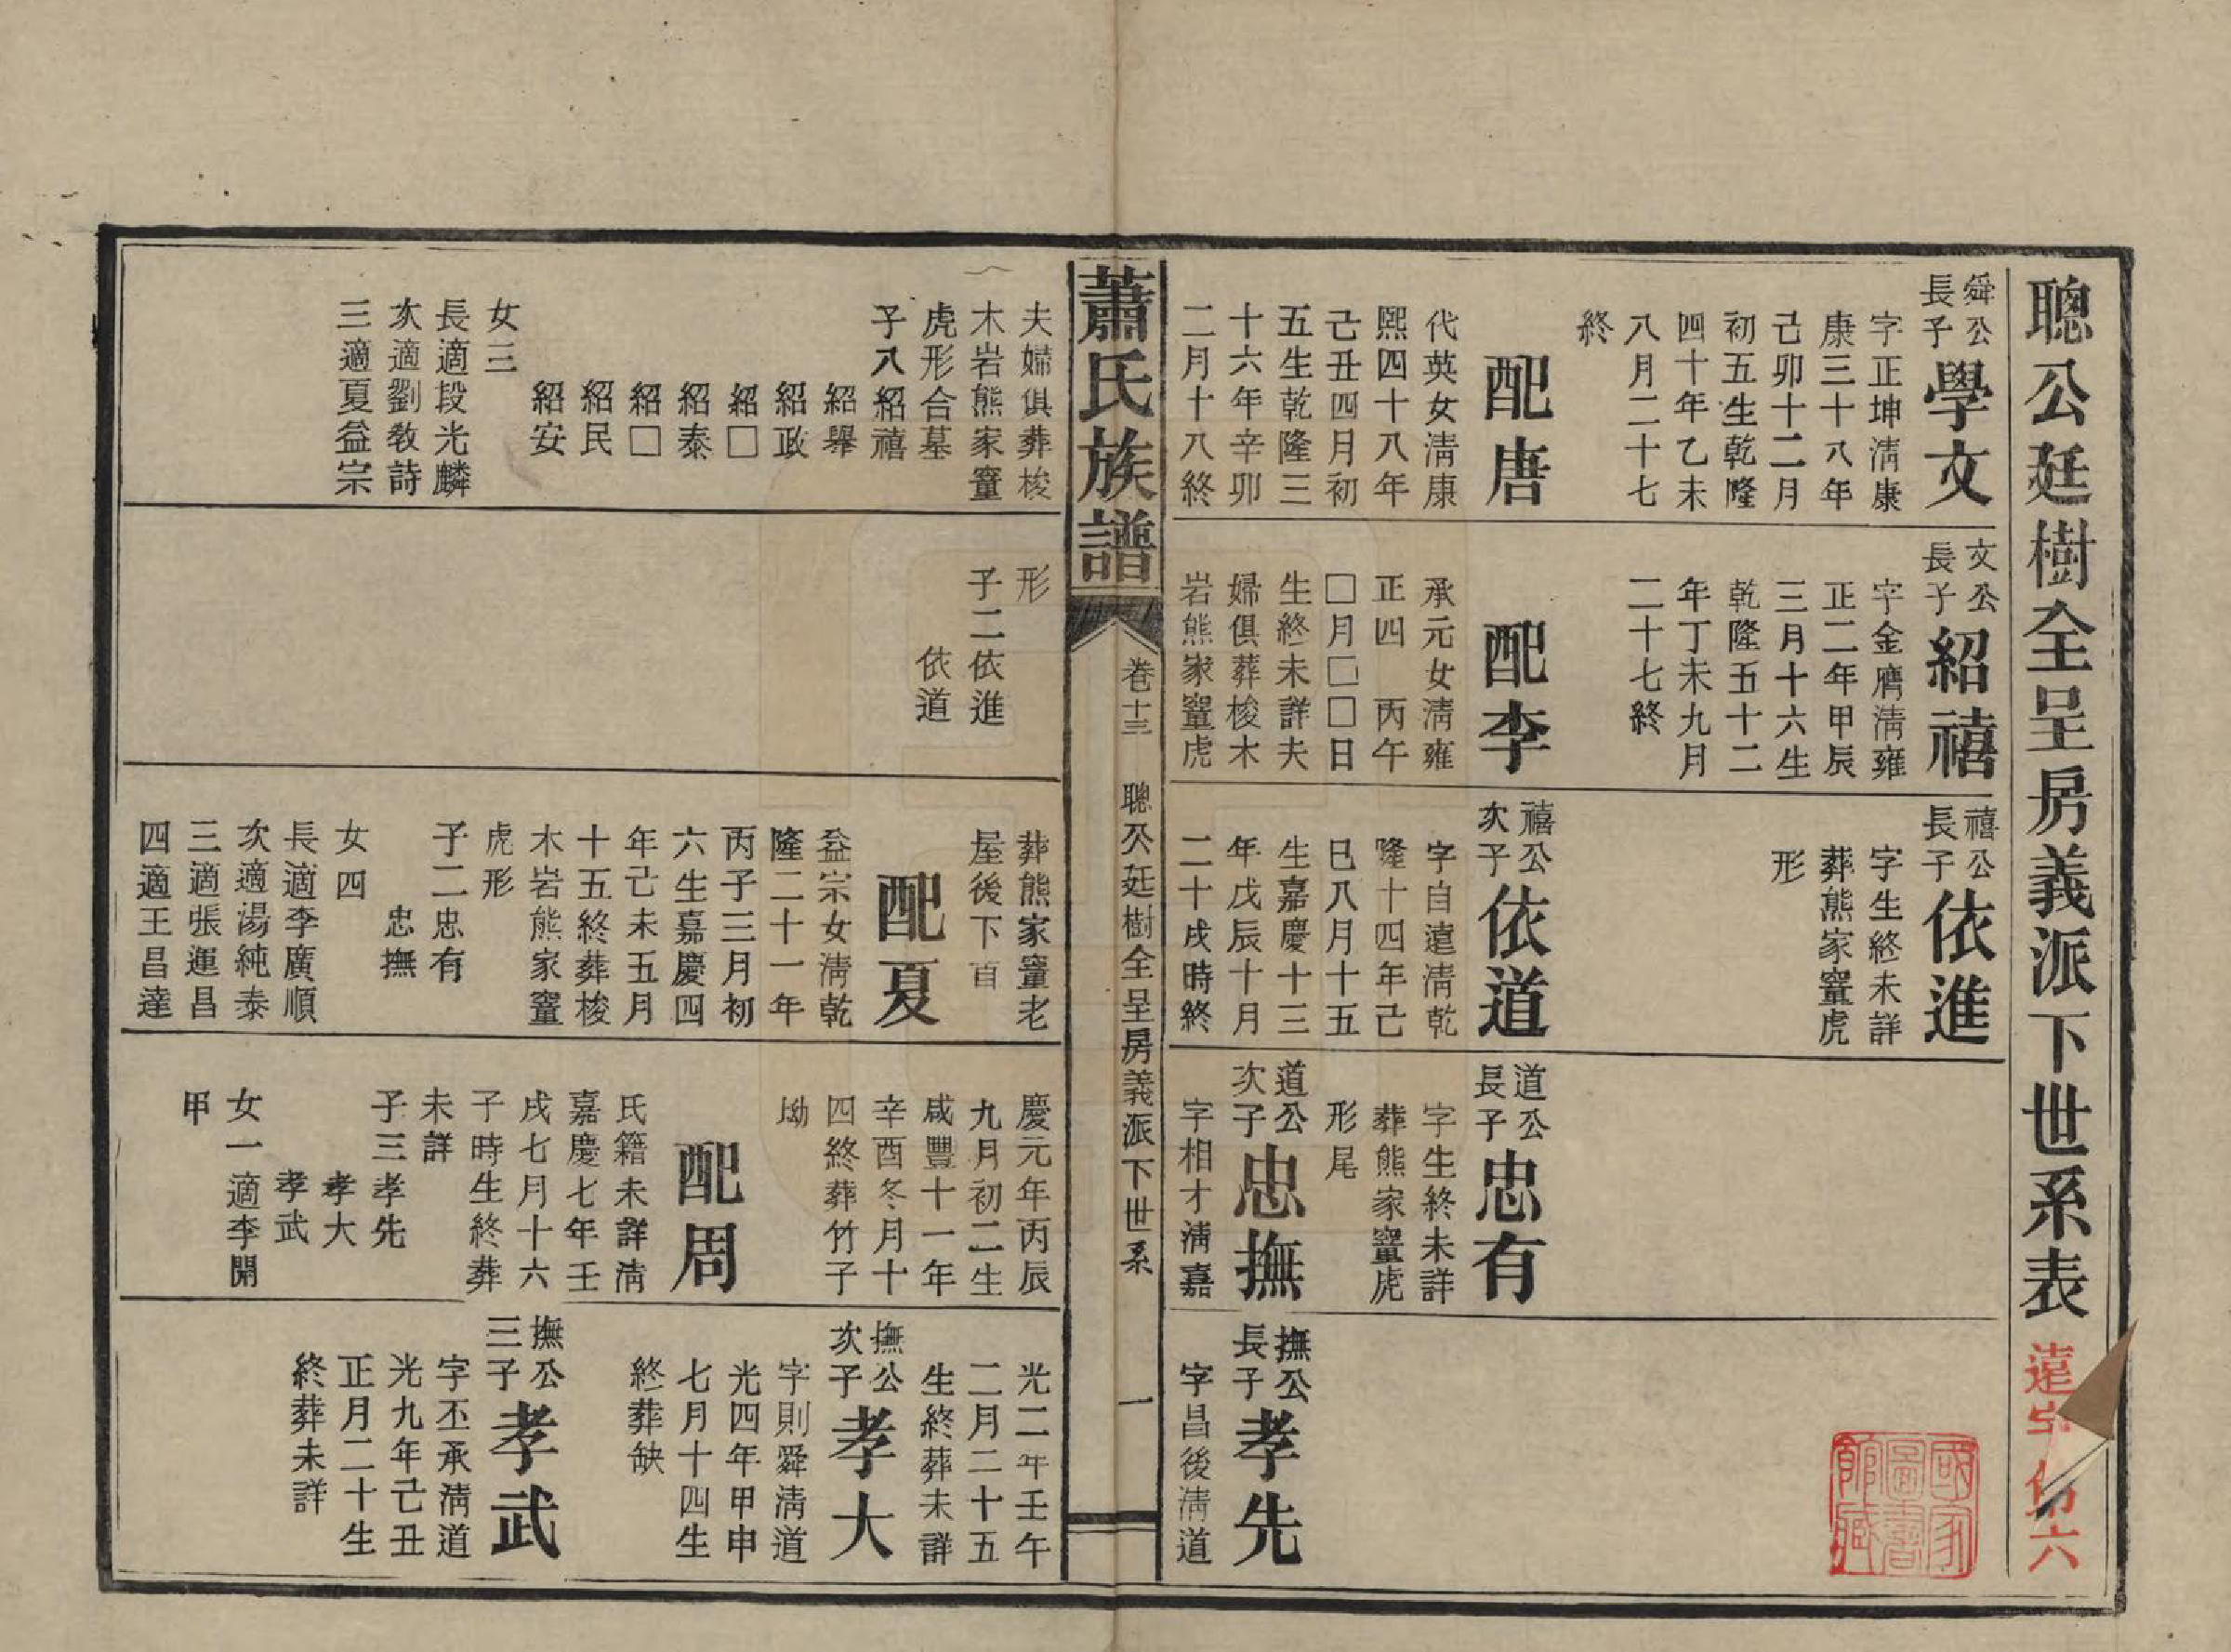 聰公廷樹全呈房義派下世系表
遠字第六
國家圖書館藏
舜公
長子
學文
字正坤淸康
康三十八年
己卯十二月
初五生乾隆
四十年乙未
八月二十七
終
配唐
代英女淸康
熙四十八年
己丑四月初
五生乾隆三
十六年辛卯
二月十八終
文公
長子
紹禧
字金膺淸雍
正二年甲辰
三月十六生
乾隆五十二
年丁未九月
二十七終
配李
承元女淸雍
正四 丙午
□月□□日
生終未詳夫
婦俱葬梭木
岩熊家簹虎
禧公
長子
依進
字生終未詳
葬熊家簹虎
形
禧公
次子
依道
字自遠淸乾
隆十四年己
巳八月十五
生嘉慶十三
年戊辰十月
二十戌時終
道公
長子
忠有
字生終未詳
葬熊家簹虎
形尾
道公
次子
忠撫
字相才淸嘉
撫公
長子
孝先
字昌後淸道
蕭氏族譜
卷十三
聰公廷樹全呈房義派下世系
一
夫婦俱葬梭
木岩熊家簹
虎形合墓
子八紹禧
紹舉
紹政
紹□
紹泰
紹□
紹民
紹安
女三
長適段光麟
次適劉敎詩
三適夏益宗
形
子二依進
依道
葬熊家簹老
屋後下首
配夏
益宗女淸乾
隆二十一年
丙子三月初
六生嘉慶四
年己未五月
十五終葬梭
木岩熊家簹
虎形
子二忠有
忠撫
女四
長適李廣順
次適湯純泰
三適張運昌
四適王昌達
慶元年丙辰
九月初二生
咸豐十一年
辛酉冬月十
四終葬竹子
坳
配周
氏籍未詳淸
嘉慶七年壬
戌七月十六
子時生終葬
未詳
子三孝先
孝大
孝武
女一適李開
甲
光二年壬午
二月二十五
生終葬未詳
撫公
次子
孝大
字則舜淸道
光四年甲申
七月十四生
終葬缺
撫公
三子
孝武
字丕承淸道
光九年己丑
正月二十生
終葬未詳